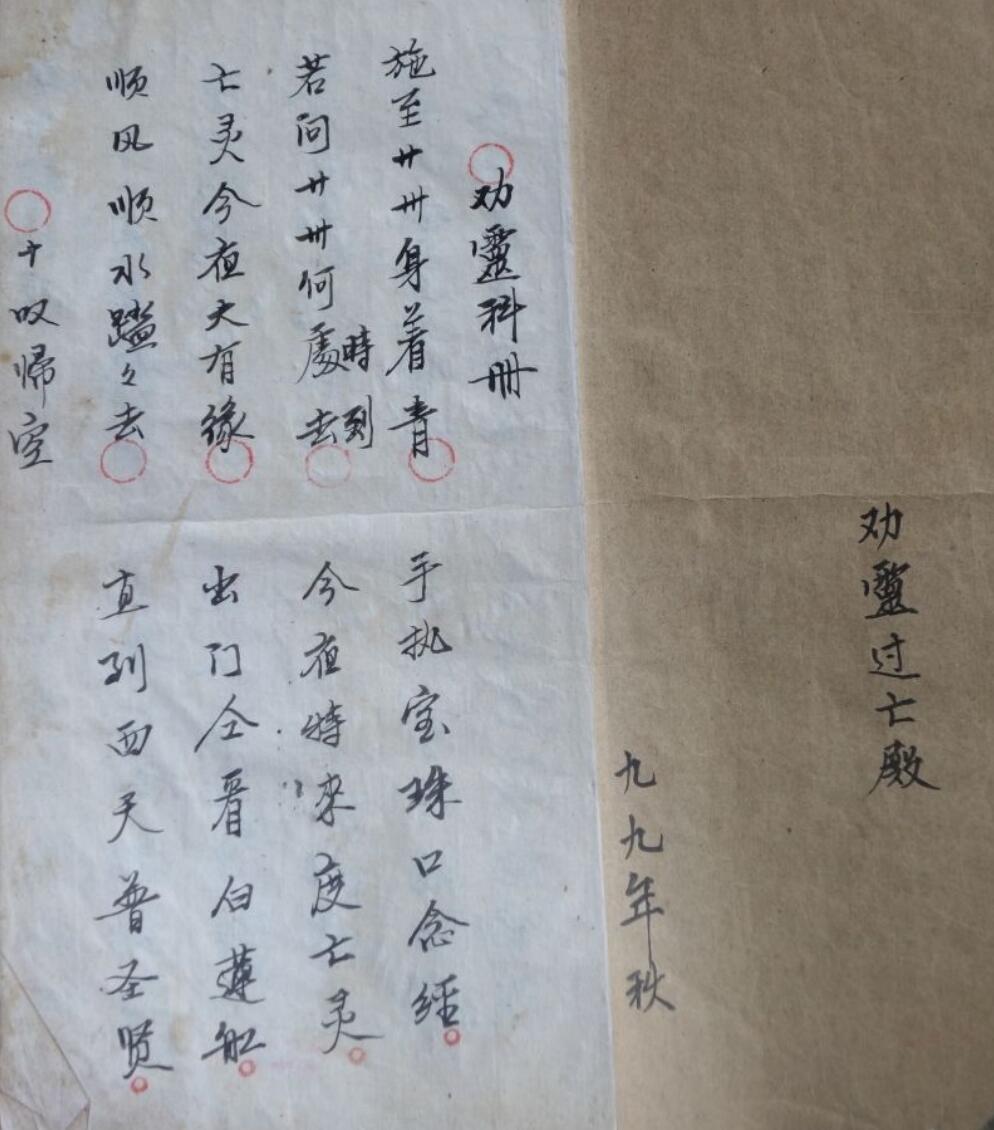 劝靈过亡殿
九九年秋
劝靈科册
施至廾卅身着青
手执宝珠口念经
若问廾卅何處去
時到
今夜特来度亡灵
亡灵今夜大有缘
出门仝看白莲船
顺风顺水踏々去
直到西天普圣贤
十叹帰空